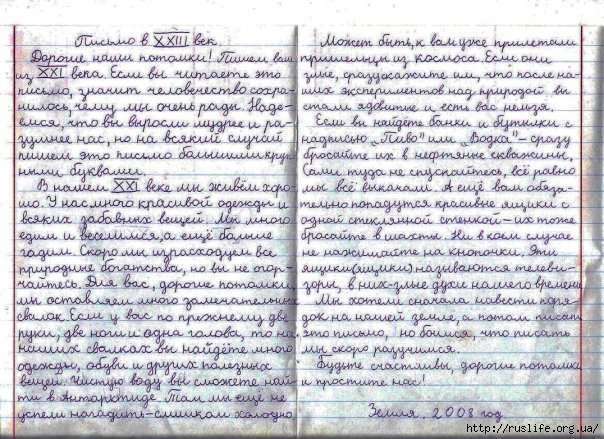 Письмо в XXIII век.
Дорогие наши потомки! Пишем вам
из XXI века. Если вы читаете это
письмо, значит человечество сохра-
нилось, чему мы очень рады. Наде-
емся, что вы выросли мудрее и ра-
зумнее нас, но на всякий случай
пишем это письмо большими круп-
ными буквами.
В нашем XXI веке мы живём хоро-
шо. У нас много красивой одежды и
всяких забавных вещей. Мы много
едим и веселимся, а ещё больше
гадим. Скоро мы израсходуем все
природные богатства, но вы не огор-
чайтесь. Для вас, дорогие потомки,
мы оставляем много замечательных
свалок. Если у вас по прежнему две
руки, две ноги и одна голова, то на
наших свалках вы найдёте много
одежды, обуви и других полезных
вещей. Чистую воду вы сможете най-
ти в Антарктиде. Там мы ещё не
успели нагадить - слишком холодно.
Может быть, к вам уже прилетали
пришельцы из космоса. Если они
злые, сразу скажите им, что после на-
ших экспериментов над природой вы
стали ядовитые и есть вас нельзя.
Если вы найдёте банки и бутылки с
надписью „Пиво" или „Водка" - сразу
бросайте их в нефтяные скважины,
Сами туда не спускайтесь, всё равно
мы всё выкачали. А ещё вам обяза-
тельно попадутся красивые ящики с
одной стеклянной стенкой - их тоже
бросайте в шахты. Ни в коем случае
не нажимайте на кнопочки. Эти
ящики (ящики) называются телеви-
зоры, в них - злые духи нашего времени.
Мы хотели сначала навести поря-
док на нашей земле, а потом писать
это письмо, но боимся, что писать
мы скоро разучимся.
Будьте счастливы, дорогие потомки
и простите нас!
Земля, 2008 год
http://ruslife.org.ua/